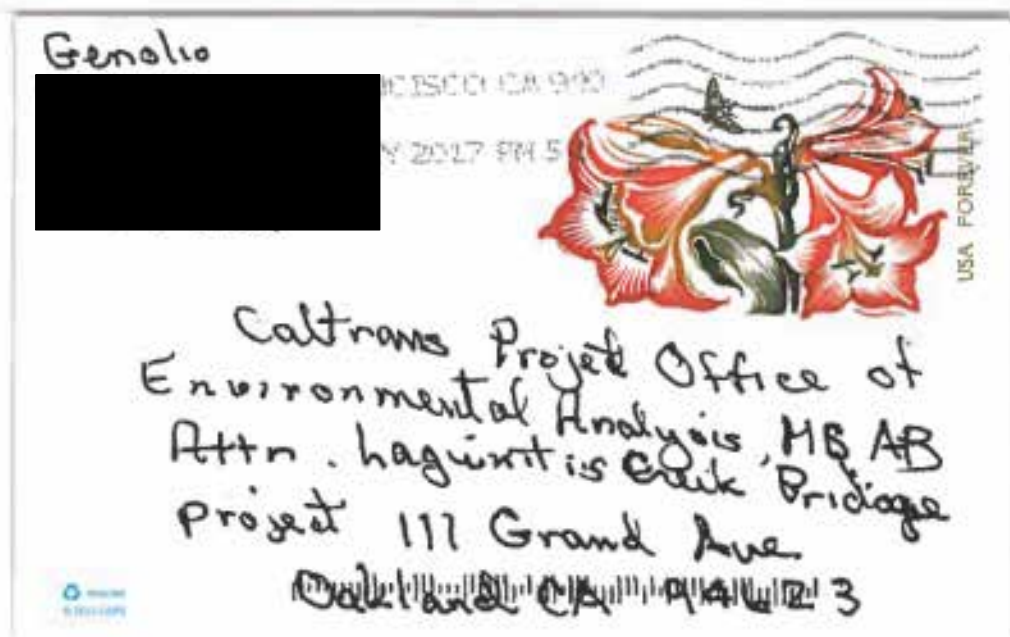 Genolio
CISCO CA 940
Y 2017 PM 5
USA FOREVER
Caltrans Projekt Office of
Environmental Analysis, MS AB
Attn. Lagunitis Creik Bridage
Project 111 Grand Ave
Oakland CA 94623